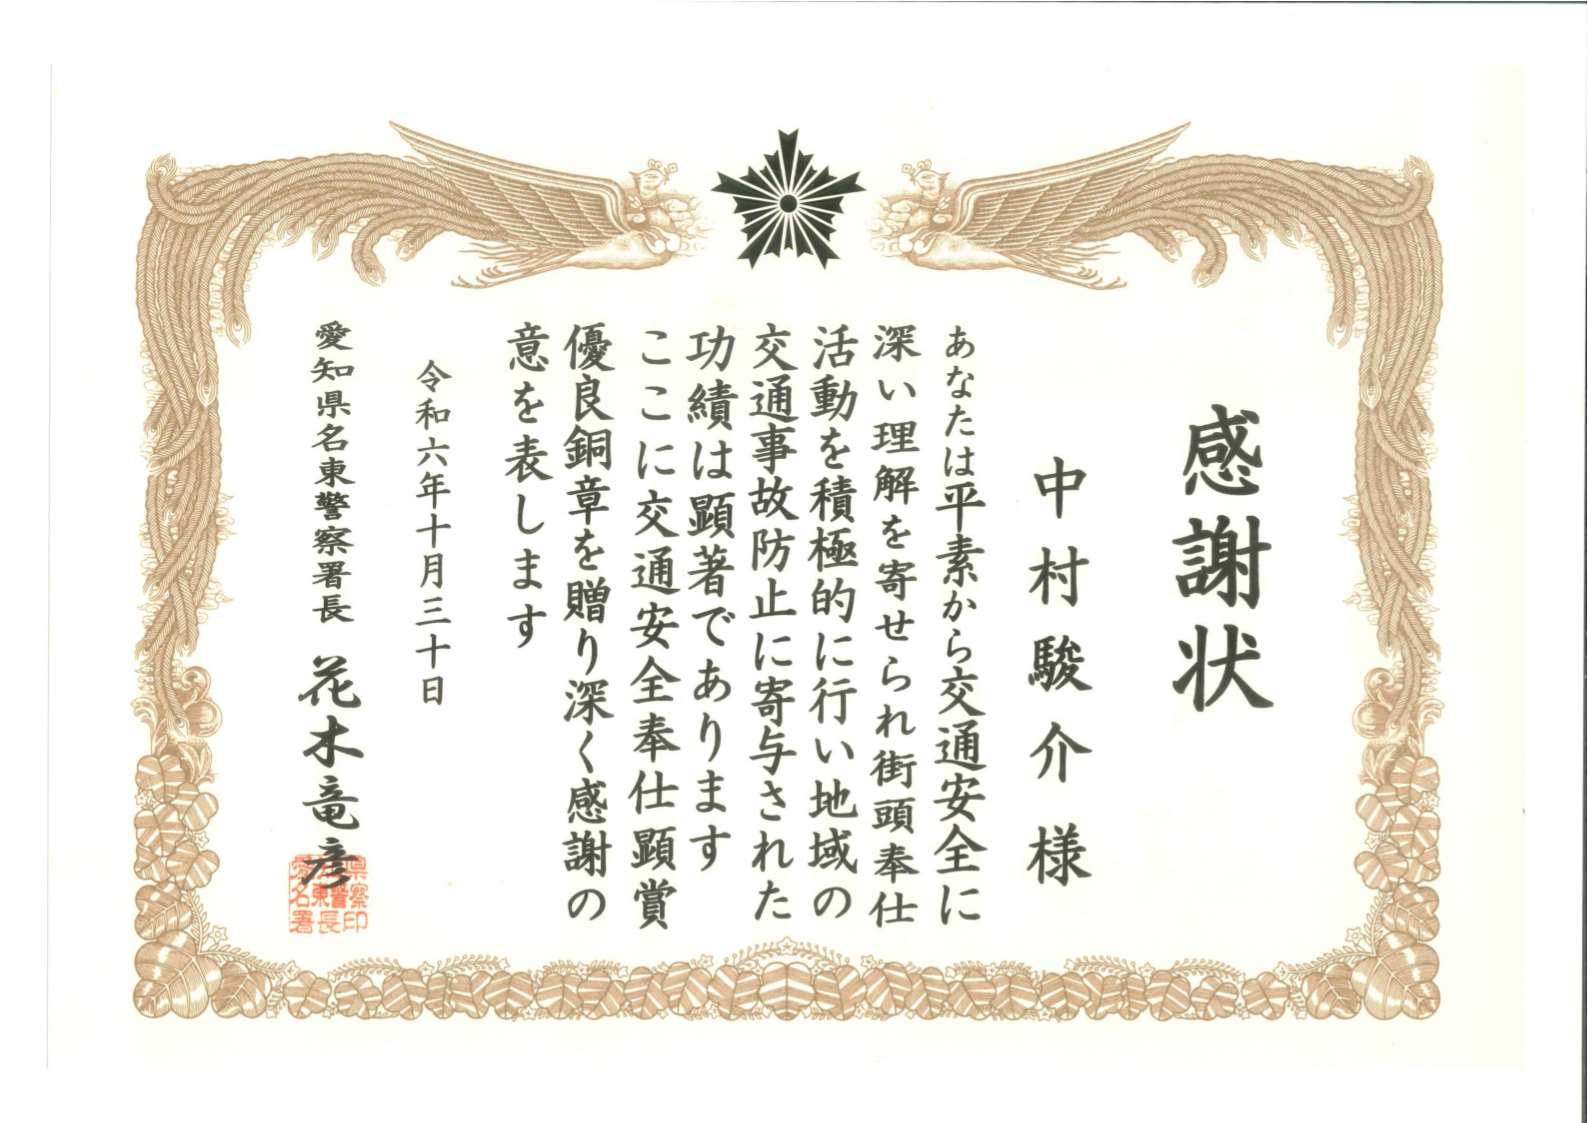 感謝状
中村駿介様
あなたは平素から交通安全に
深い理解を寄せられ街頭奉仕
活動を積極的に行い地域の
交通事故防止に寄与された
功績は顕著であります
ここに交通安全奉仕顕賞
優良銅章を贈り深く感謝の
意を表します
令和六年十月三十日
愛知県名東警察署長 花木竜彦